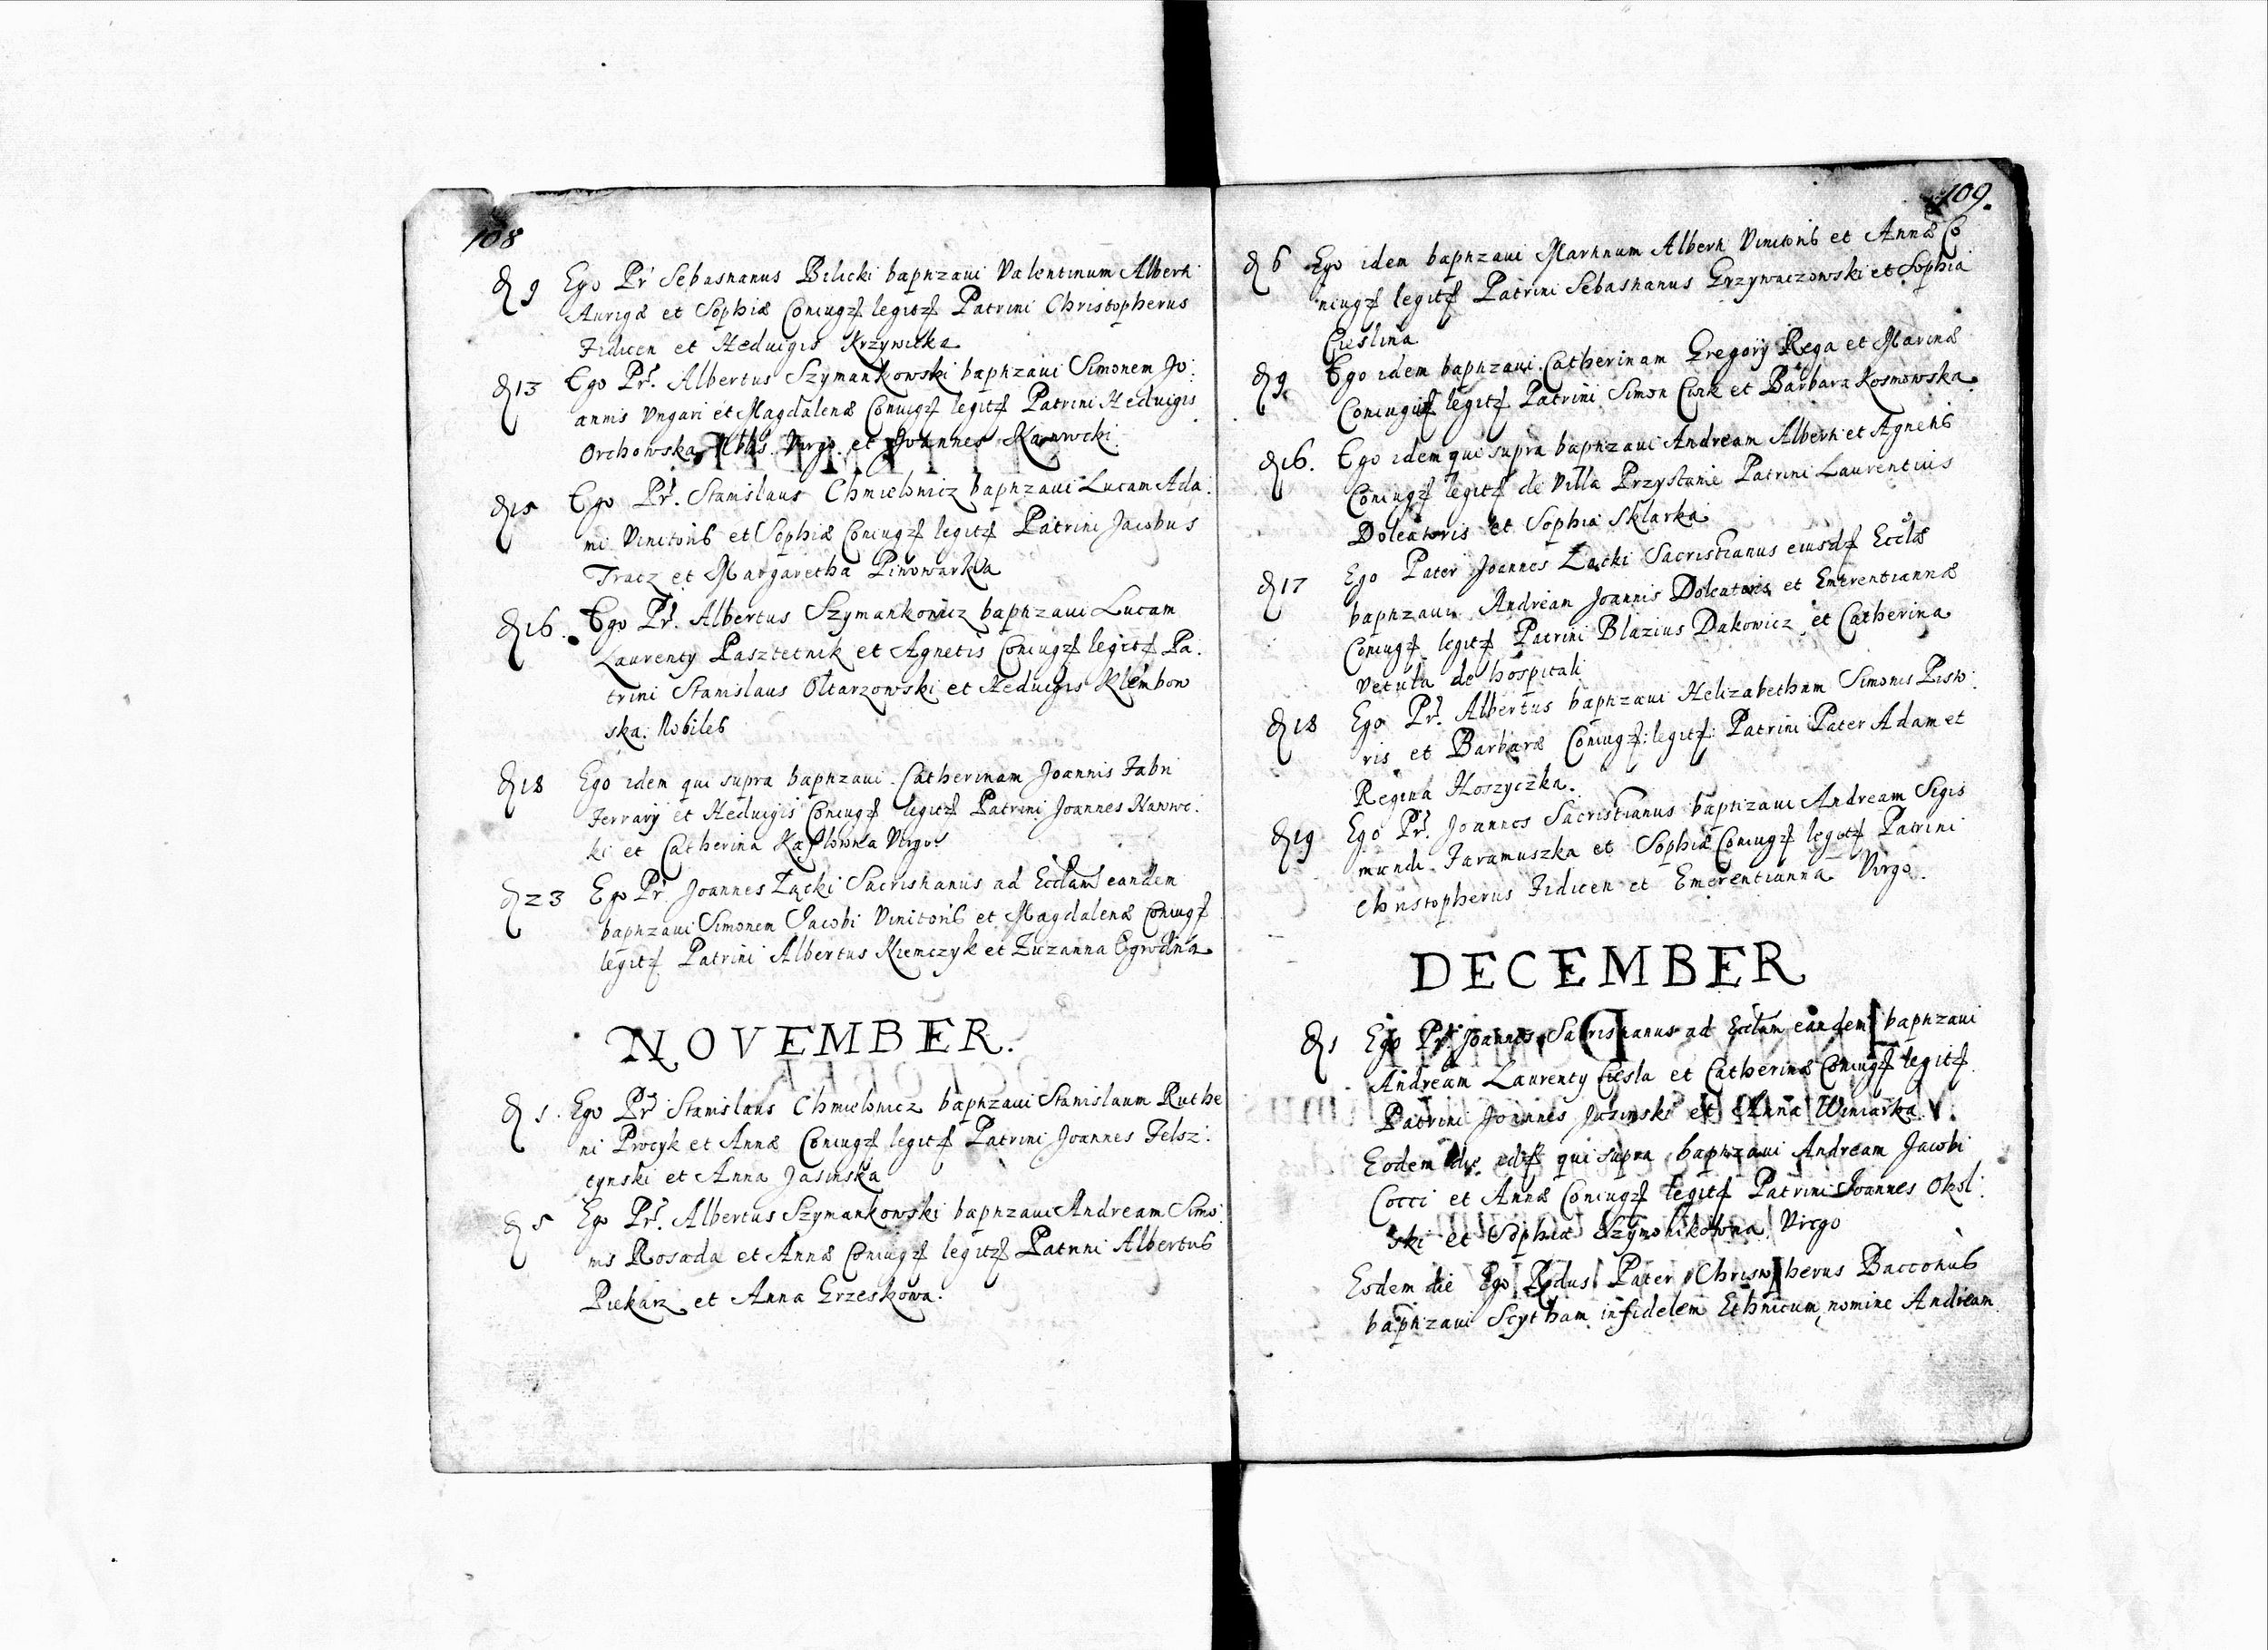 108
D 9 Ego Pr Sebastianus Bilicki baptizaui Valentinum Alberti
Aurigæ et Sophiæ Coniugʒ legitʒ Patrini Christopherus
Fidicen et Heduigis Krzywicka
D 13 Ego Pr. Albertus Szymankowski baptizaui Simonem Jo:
annis Vngari et Magdalenæ Coniugʒ legitʒ Patrini Heduigis
Orchowska Virgo et Joannes
D 15 Ego Pr. Stanislaus Chmielowicz baptizaui Lucam Ada:
mi Vinitoris et Sophiæ Coniugʒ legitʒ Patrini Jacobus
Tracz et Margaretha Piwowarka
D 16. Ego Pr. Albertus Szymankowicz baptizaui Lucam
Laurenty Pasztetnik et Agnetis Coniugʒ legitʒ Pa:
trini Stanislaus Oltarzowski et Heduigis Klembow
ska. Nobiles
D 18 Ego idem qui supra baptizaui Catherinam Joannis Fabri
Ferrarÿ et Heduigis Coniugʒ legitʒ Patrini Joannes Nawwc:
ki et Catherina Virgo
D 23 Ego Pr Joannes Zącki Sacristianus ad Ecclam eandem
baptizaui Simonem Jacobi Vinitoris et Magdalenæ Coniugʒ
legitʒ Patrini Albertus Niemczyk et Zuzanna Ogrodna
NOVEMBER.
D 1. Ego Pr Stanislaus Chmielowicz baptizaui Stanislaum Ruthe
ni Procyk et Annæ Coniugʒ legitʒ Patrini Joannes Felsz:
tynski et Anna Jasinska
D 5 Ego Pr. Albertus Szymankowski baptizaui Andream Simo:
nis Rosada et Annæ Coniugʒ legitʒ Patrini Albertus
Piekarz et Anna Grzeskowa.
109.
D 6 Ego idem baptizaui Martinum Alberti Vinitoris et Annæ Co
niugʒ legitʒ Patrini Sebastianus Grzywaczowski et Sophia
Cieslina
D 9 Ego idem baptizaui Catherinam Gregorÿ Rega et Marinæ
Coniugiʒ legitʒ Patrini Simon Cink et Barbara Kosmowska.
D 16. Ego idem qui supra baptizaui Andream Alberti et Agnetis
Coniugʒ legitʒ de Villa Przystanie Patrini Laurentius
Doleatoris et Sophia Sklarka
D 17 Ego Pater Joannes Zącki Sacristianus eiusdʒ Ecclæ
baptizaui Andream Joannis Doleatoris et Emerentiannæ
Coniugʒ legitʒ Patrini Blazius Dakowicz et Catherina
Vetula de hospitali
D 18 Ego Pr. Albertus baptizaui Helizabetham Simonis Pisto:
ris et Barbaræ Coniugʒ: legitʒ: Patrini Pater Adam et
Regina Hoszyczka.
D 19 Ego Pr. Joannes Sacristianus baptizaui Andream Sigis
mundi Faramuszka et Sophiæ Coniugʒ legitʒ Patrini
Christopherus Fidicen et Emerentianna Virgo.
DECEMBER
D 1 Ego Pr. Joannes Sacristianus ad Ecclam eandem baptizaui
Andream Laurenty Ciesla et Catherinæ Coniugʒ legitʒ
Patrini Joannes Jasinski et Anna Winiarka.
Eodem die idʒ qui supra baptizaui Andream Jacobi
Cocci et Annæ Coniugʒ legitʒ Patrini Joannes Oksi:
ski et Sophia Szymonikowna Virgo
Eodem die Ego Rdus Pater Christopherus Bacconus
baptizaui Scytham infidelem Ethnicum nomine Andream